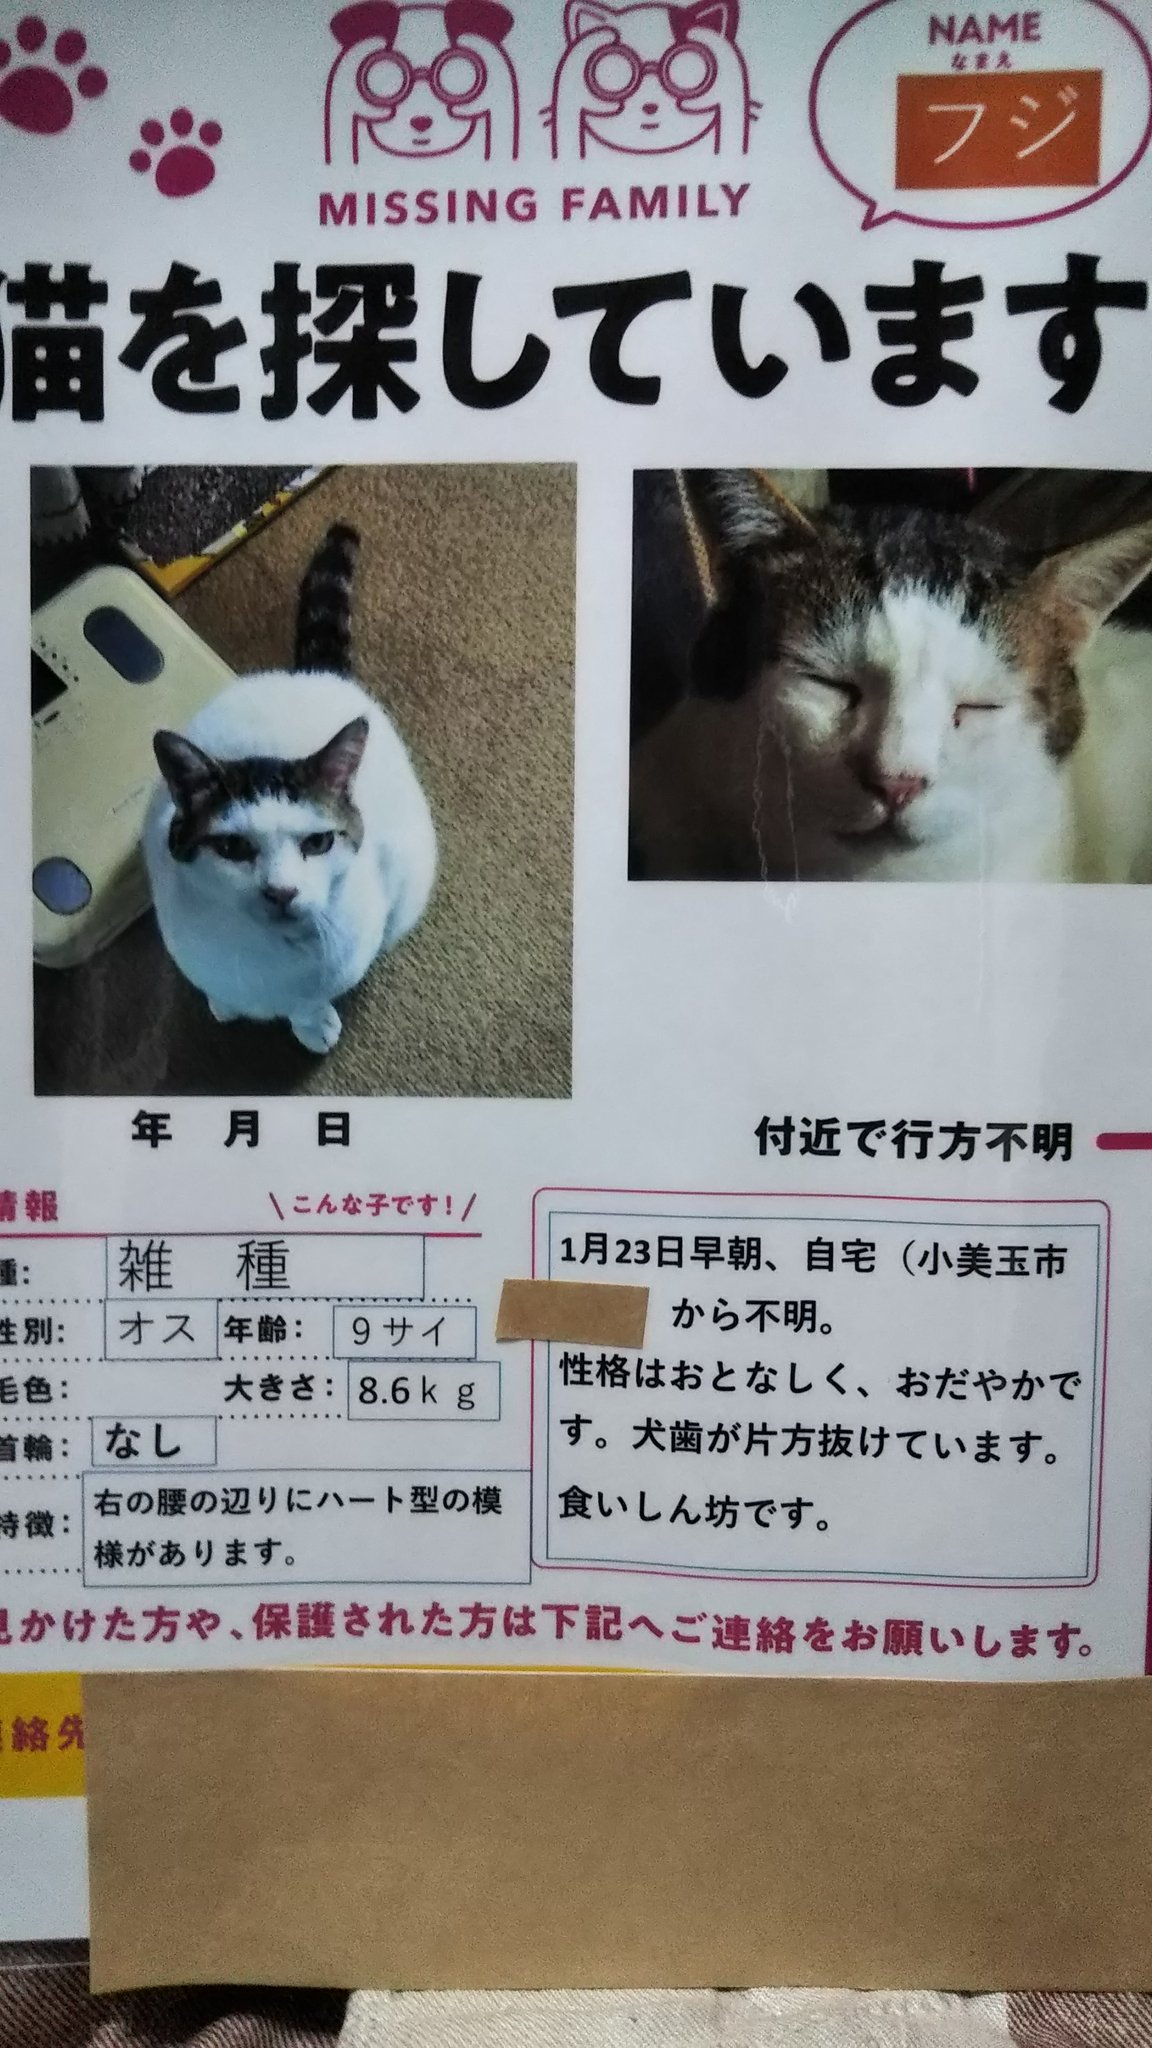 NAME
なまえ
フジ
MISSING FAMILY
猫を探しています
年 月 日
付近で行方不明
情報
\こんな子です!/
種:
雑 種
性別:
オス
年齢:
9サイ
毛色:
大きさ:
8.6kg
首輪:
なし
特徴:
右の腰の辺りにハート型の模
様があります。
1月23日早朝、自宅(小美玉市
から不明。
性格はおとなしく、おだやかで
す。犬歯が片方抜けています。
食いしん坊です。
見かけた方や、保護された方は下記へご連絡をお願いします。
連絡先